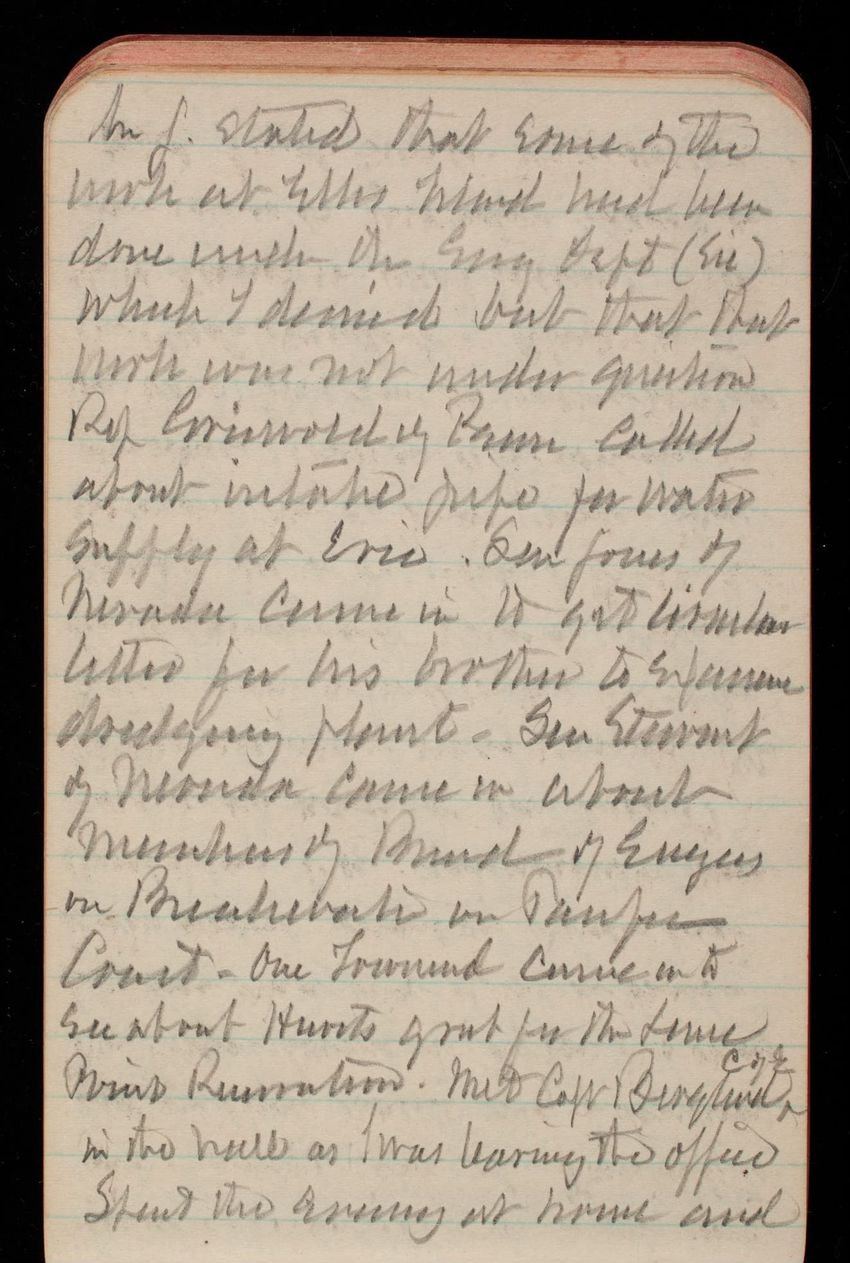 stated that some of the
work at Ellis Island had been
done under the Eng Dept (Sic)
which I denied but that that
work was not under question
Rep Griswold of Penn called
about intake pipe for water
supply at Erie. Sen Jones of
Nevada came in to get circular
letter for his brother to examine
dredging plant - Sen Stewart
of Nevada came in about
Members of Board of Engrs
on Breakwater on Pacific
Coast - One Townsend came in to
see about Hunts grab for the
Point Reservation. Met Capt Bergland C of E
in the hall as I was leaving the office
Spent the evening at home and